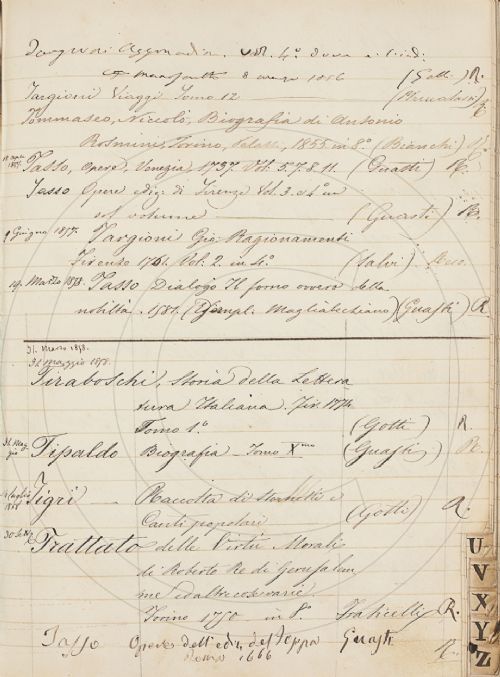 Targioni Viaggi Tomo 12
Tommaseo, Niccolò, Biografia di Antonio
Rosmini, Torino, 1855 in 8.° (Bianchi)
Tasso, Opere, Venezia, 1737. Vol. 5. 7. 8. 11. (Guasti) R.
Tasso Opere ediz. di Firenze Vol. 3. e 4.° in
un volume (Guasti) R.
9 Giugno 1857. Targioni Gio. Ragionamenti
Firenze Vol. 2. in 4.° (Salvi)
19. Marzo 1858. Tasso Dialogo Il forno ovvero della
nobiltà. 1581. (Esempl. Magliabechiano) (Guasti) R
31. Marzo 1858.
31. maggio 1858.
Tiraboschi, Storia della Lettera
tura Italiana. Fir. 1774.
Tomo 1.° (Gotti) R.
31. Mag
gio Tipaldo Biografia - Tomo X.mo (Guasti) R.
Tigri - Raccolta di stornelli e
Canti popolari (Gotti) R.
Trattato delle Virtù Morali
di Roberto Re di Gerusalem
me ed altre cose varie.
Torino 1750 - in 8.° Fraticelli R.
Tasso Opere dell'ediz. del Deppa Guasti R.
Roma 1666
U
V
X
Y
Z